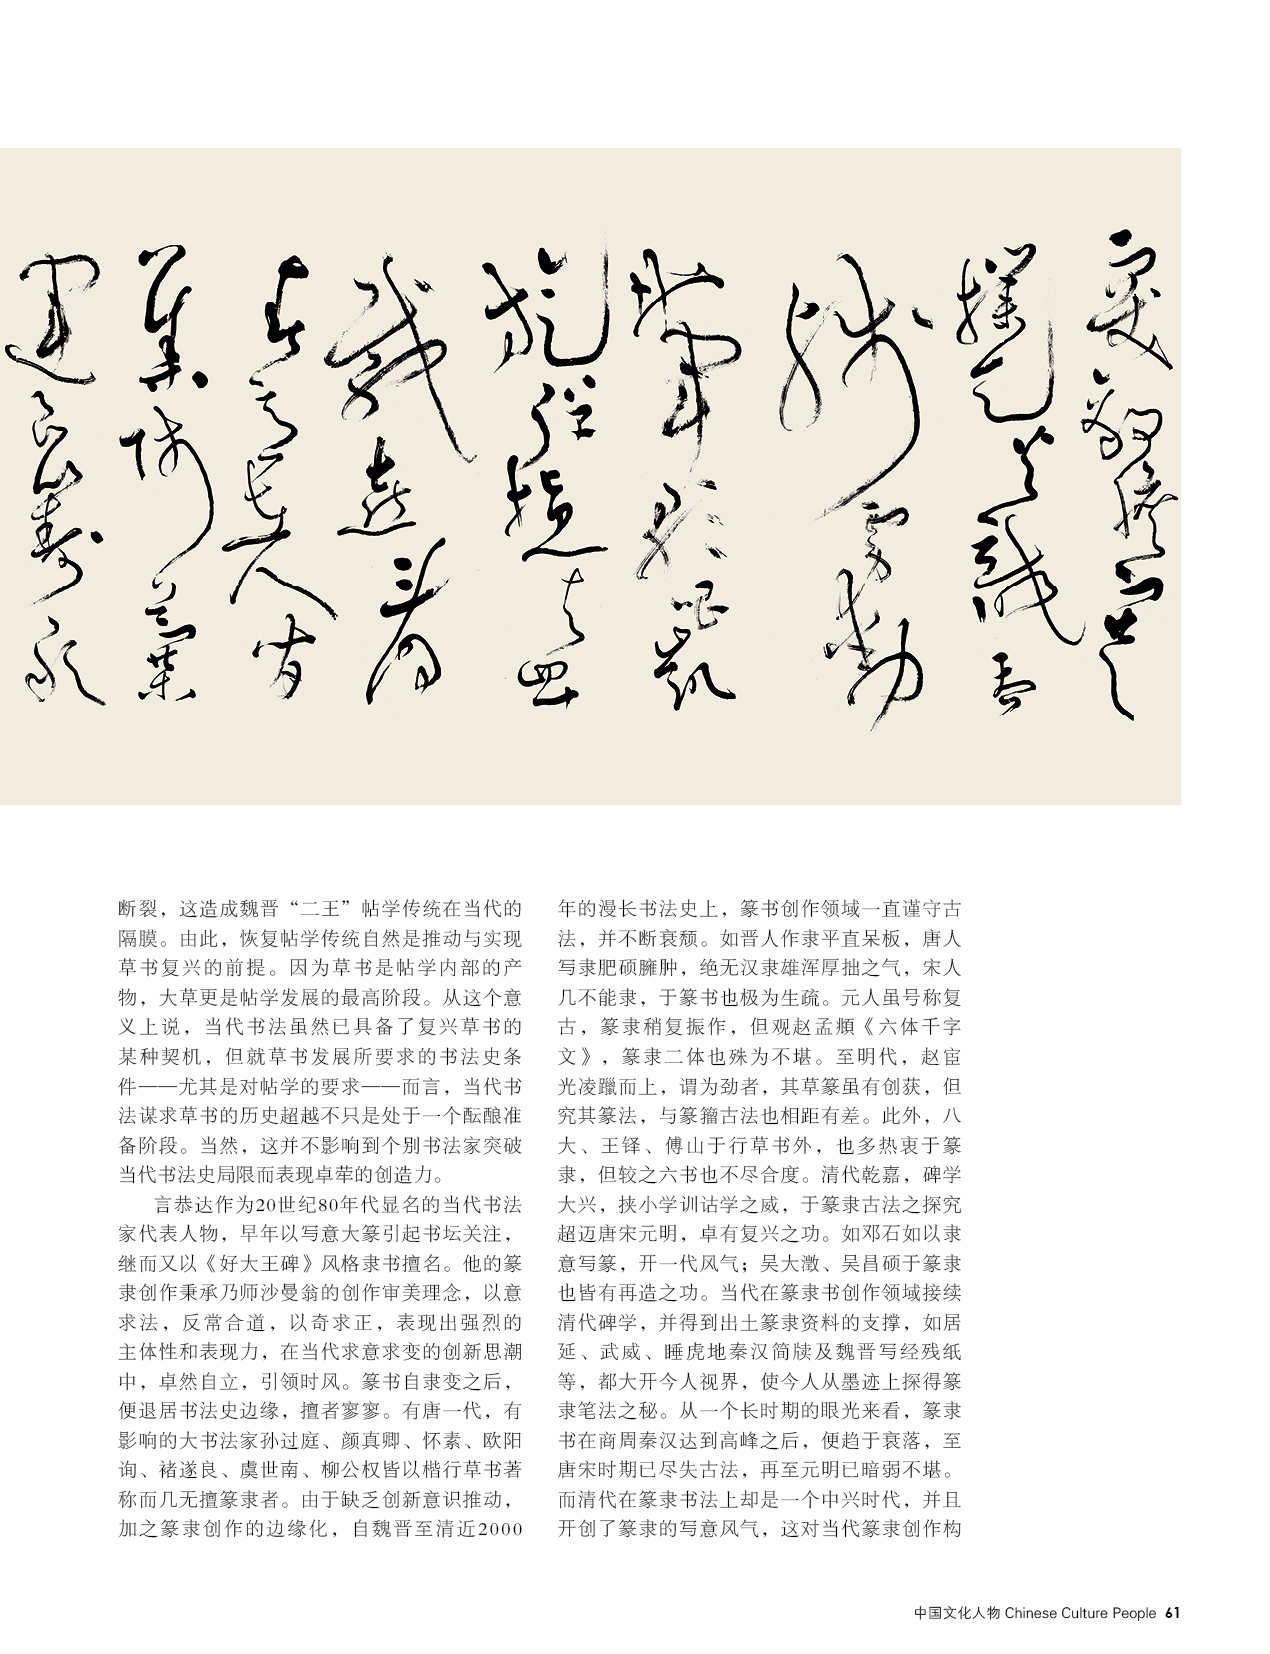 断裂，这造成魏晋“二王”帖学传统在当代的
隔膜。由此，恢复帖学传统自然是推动与实现
草书复兴的前提。因为草书是帖学内部的产
物，大草更是帖学发展的最高阶段。从这个意
义上说，当代书法虽然已具备了复兴草书的
某种契机，但就草书发展所要求的书法史条
件——尤其是对帖学的要求——而言，当代书
法谋求草书的历史超越不只是处于一个酝酿准
备阶段。当然，这并不影响到个别书法家突破
当代书法史局限而表现卓荦的创造力。
言恭达作为20世纪80年代显名的当代书法
家代表人物，早年以写意大篆引起书坛关注，
继而又以《好大王碑》风格隶书擅名。他的篆
隶创作秉承乃师沙曼翁的创作审美理念，以意
求法，反常合道，以奇求正，表现出强烈的
主体性和表现力，在当代求意求变的创新思潮
中，卓然自立，引领时风。篆书自隶变之后，
便退居书法史边缘，擅者寥寥。有唐一代，有
影响的大书法家孙过庭、颜真卿、怀素、欧阳
询、褚遂良、虞世南、柳公权皆以楷行草书著
称而几无擅篆隶者。由于缺乏创新意识推动，
加之篆隶创作的边缘化，自魏晋至清近2000
年的漫长书法史上，篆书创作领域一直谨守古
法，并不断衰颓。如晋人作隶平直呆板，唐人
写隶肥硕臃肿，绝无汉隶雄浑厚拙之气，宋人
几不能隶，于篆书也极为生疏。元人虽号称复
古，篆隶稍复振作，但观赵孟頫《六体千字
文》，篆隶二体也殊为不堪。至明代，赵宧
光凌躐而上，谓为劲者，其草篆虽有创获，但
究其篆法，与篆籀古法也相距有差。此外，八
大、王铎、傅山于行草书外，也多热衷于篆
隶，但较之六书也不尽合度。清代乾嘉，碑学
大兴，挟小学训诂学之威，于篆隶古法之探究
超迈唐宋元明，卓有复兴之功。如邓石如以隶
意写篆，开一代风气；吴大澂、吴昌硕于篆隶
也皆有再造之功。当代在篆隶书创作领域接续
清代碑学，并得到出土篆隶资料的支撑，如居
延、武威、睡虎地秦汉简牍及魏晋写经残纸
等，都大开今人视界，使今人从墨迹上探得篆
隶笔法之秘。从一个长时期的眼光来看，篆隶
书在商周秦汉达到高峰之后，便趋于衰落，至
唐宋时期已尽失古法，再至元明已暗弱不堪。
而清代在篆隶书法上却是一个中兴时代，并且
开创了篆隶的写意风气，这对当代篆隶创作构
中国文化人物 Chinese Culture People 61